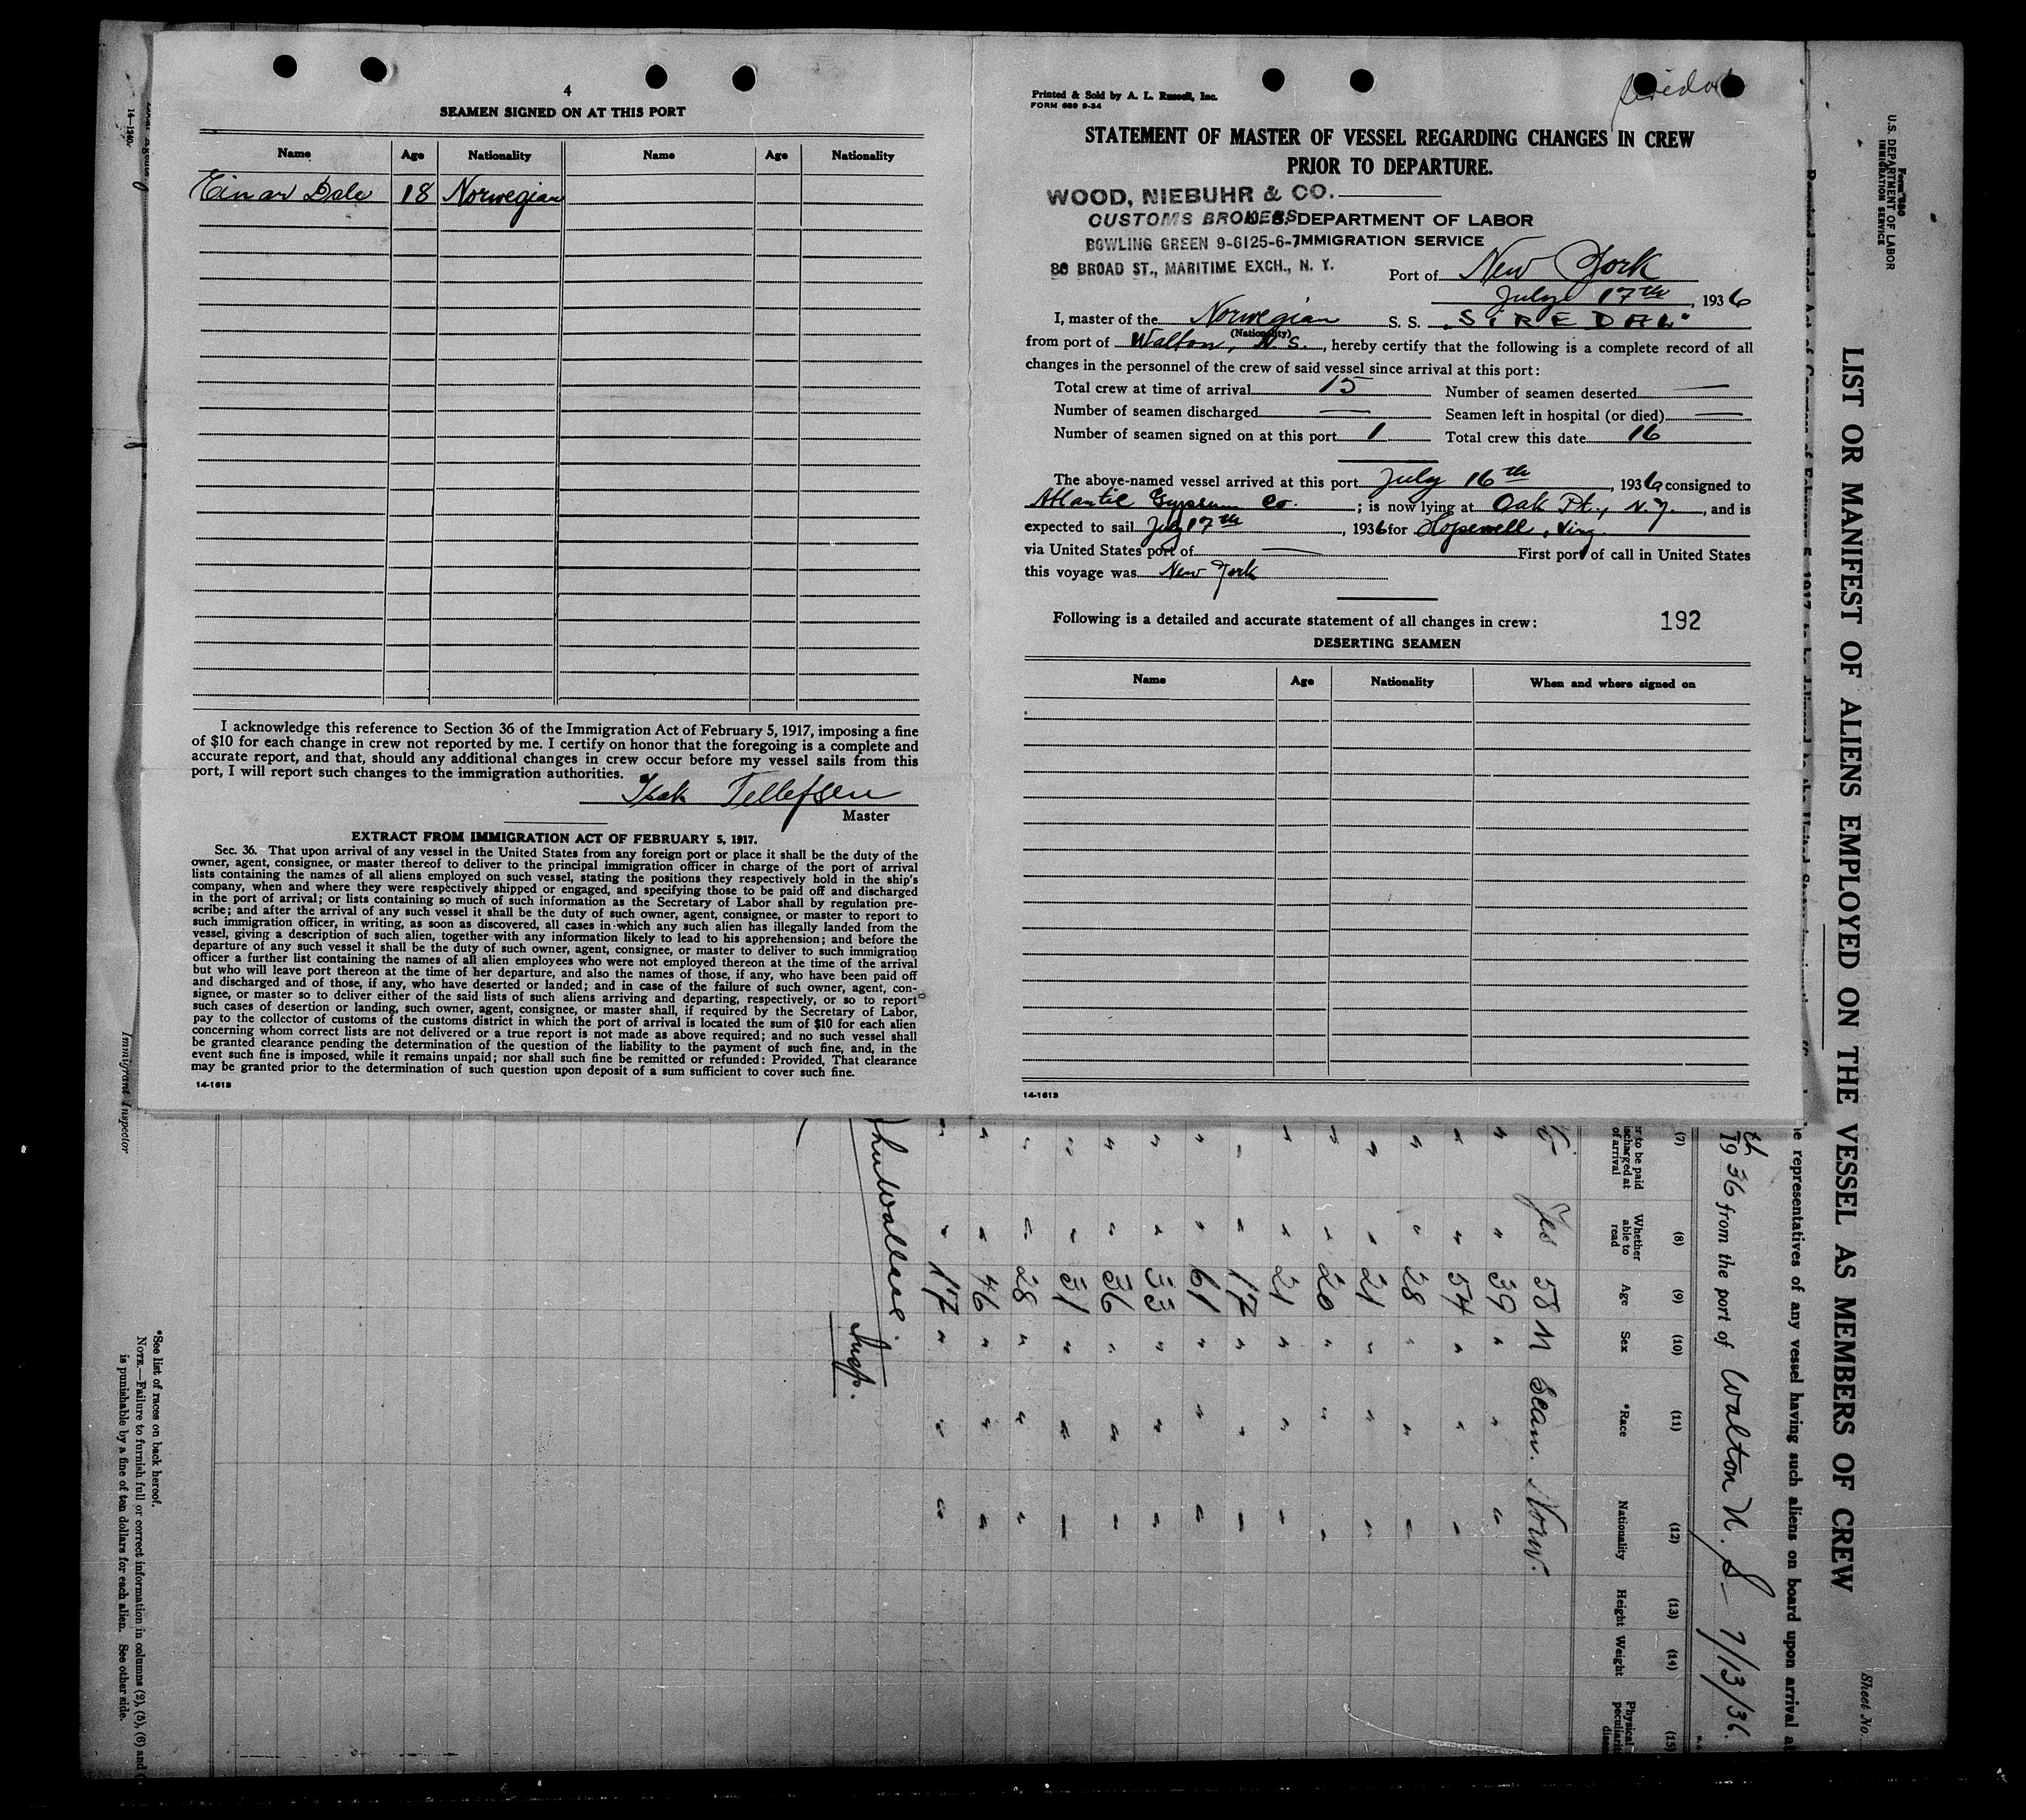 4
SEAMEN SIGNED ON AT THIS PORT
Name Age Nationality Name Age Nationality
Einar Dale 18 Norwegian
I acknowledge this reference to Section 36 of the Immigration Act of February 5, 1917, imposing a fine
of $10 for each change in crew not reported by me. I certify on honor that the foregoing is a complete and
accurate report, and that, should any additional changes in crew occur before my vessel sails from this
port, I will report such changes to the immigration authorities.
Isak Tellefsen
Master
EXTRACT FROM IMMIGRATION ACT OF FEBRUARY 5, 1917.
Sec. 36. That upon arrival of any vessel in the United States from any foreign port or place it shall be the duty of the
owner, agent, consignee, or master thereof to deliver to the principal immigration officer in charge of the port of arrival
lists containing the names of all aliens employed on such vessel, stating the positions they respectively hold in the ship's
company, when and where they were respectively shipped or engaged, and specifying those to be paid off and discharged
in the port of arrival; or lists containing so much of such information as the Secretary of Labor shall by regulation pre-
scribe; and after the arrival of any such vessel it shall be the duty of such owner, agent, consignee, or master to report to
such immigration officer, in writing, as soon as discovered, all cases in which any such alien has illegally landed from the
vessel, giving a description of such alien, together with any information likely to lead to his apprehension; and before the
departure of any such vessel it shall be the duty of such owner, agent, consignee, or master to deliver to such immigration
officer a further list containing the names of all alien employees who were not employed thereon at the time of the arrival
but who will leave port thereon at the time of her departure, and also the names of those, if any, who have been paid off
and discharged and of those, if any, who have deserted or landed; and in case of the failure of such owner, agent, con-
signee, or master so to deliver either of the said lists of such aliens arriving and departing, respectively, or so to report
such cases of desertion or landing, such owner, agent, consignee, or master shall, if required by the Secretary of Labor,
pay to the collector of customs of the customs district in which the port of arrival is located the sum of $10 for each alien
concerning whom correct lists are not delivered or a true report is not made as above required; and no such vessel shall
be granted clearance pending the determination of the question of the liability to the payment of such fine, and, in the
event such fine is imposed, while it remains unpaid; nor shall such fine be remitted or refunded: Provided, That clearance
may be granted prior to the determination of such question upon deposit of a sum sufficient to cover such fine.
14-1613
Printed & Sold by A. L. Russell, Inc.
FORM 689 9-34
STATEMENT OF MASTER OF VESSEL REGARDING CHANGES IN CREW
PRIOR TO DEPARTURE.
WOOD, NIEBUHR & CO.
CUSTOMS BROKERS
U. S. DEPARTMENT OF LABOR
BOWLING GREEN 9-6125-6-7
IMMIGRATION SERVICE
80 BROAD ST., MARITIME EXCH., N. Y.
Port of New York
July 17th, 1936
I, master of the Norwegian S. S. "SIREDAL"
(Nationality)
from port of Walton, N.S., hereby certify that the following is a complete record of all
changes in the personnel of the crew of said vessel since arrival at this port:
Total crew at time of arrival 15 Number of seamen deserted —
Number of seamen discharged — Seamen left in hospital (or died) —
Number of seamen signed on at this port 1 Total crew this date 16
The above-named vessel arrived at this port July 16th, 1936 consigned to
Atlantic Gypsum Co.; is now lying at Oak Pt., N.Y., and is
expected to sail July 17th, 1936 for Hopewell, Virg.
via United States port of — First port of call in United States
this voyage was New York
Following is a detailed and accurate statement of all changes in crew: 192
DESERTING SEAMEN
Name Age Nationality When and where signed on
14-1613
Form 680
U.S. DEPARTMENT OF LABOR
IMMIGRATION SERVICE
Sheet No.
LIST OR MANIFEST OF ALIENS EMPLOYED ON THE VESSEL AS MEMBERS OF CREW
representatives of any vessel having such aliens on board upon arrival
th 1936 from the port of Walton N. S— 7/13/36.
(7) (8) (9) (10) (11) (12) (13) (14) (15)
to be paid
discharged at
of arrival
Whether
able to
read
Age Sex *Race Nationality Height Weight Physical
Yes 58 M Scan. Norw.
" 39 " " "
" 54 " " "
" 28 " " "
" 21 " " "
" 20 " " "
" 21 " " "
" 17 " " "
" 61 " " "
" 53 " " "
" 36 " " "
" 51 " " "
" 28 " " "
" 46 " " "
" 17 " " "
Wallace.
Insp.
Immigrant Inspector
*See list of races on back hereof.
NOTE.—Failure to furnish full or correct information in columns (2), (5), (6) and
is punishable by a fine of ten dollars for each alien. See other side.
14—1240